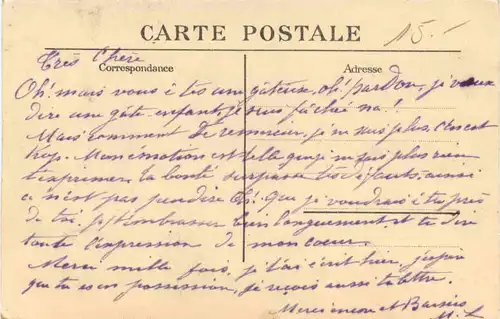 CARTE POSTALE
15.-
Très Chère
Correspondance
Adresse
Oh! mais vous êtes une gâteuse, oh! pardon, je veux
dire une gâte-enfant, je suis fâché na!
Mais comment te remercier, je ne sais plus, c'en est
trop. Mon émotion est telle que je ne sais plus rien
t'exprimer. ta bonté surpasse aussi
ce n'est pas peu dire Oh! que je voudrais être près
de toi pr t'embrasser bien longuement et te dire
toute l'expression de mon coeur.
Merci mille fois, je t'ai écrit hier, j'espère
que tu es en possession, je reçois aussi ta lettre.
Merci encore et Baisers